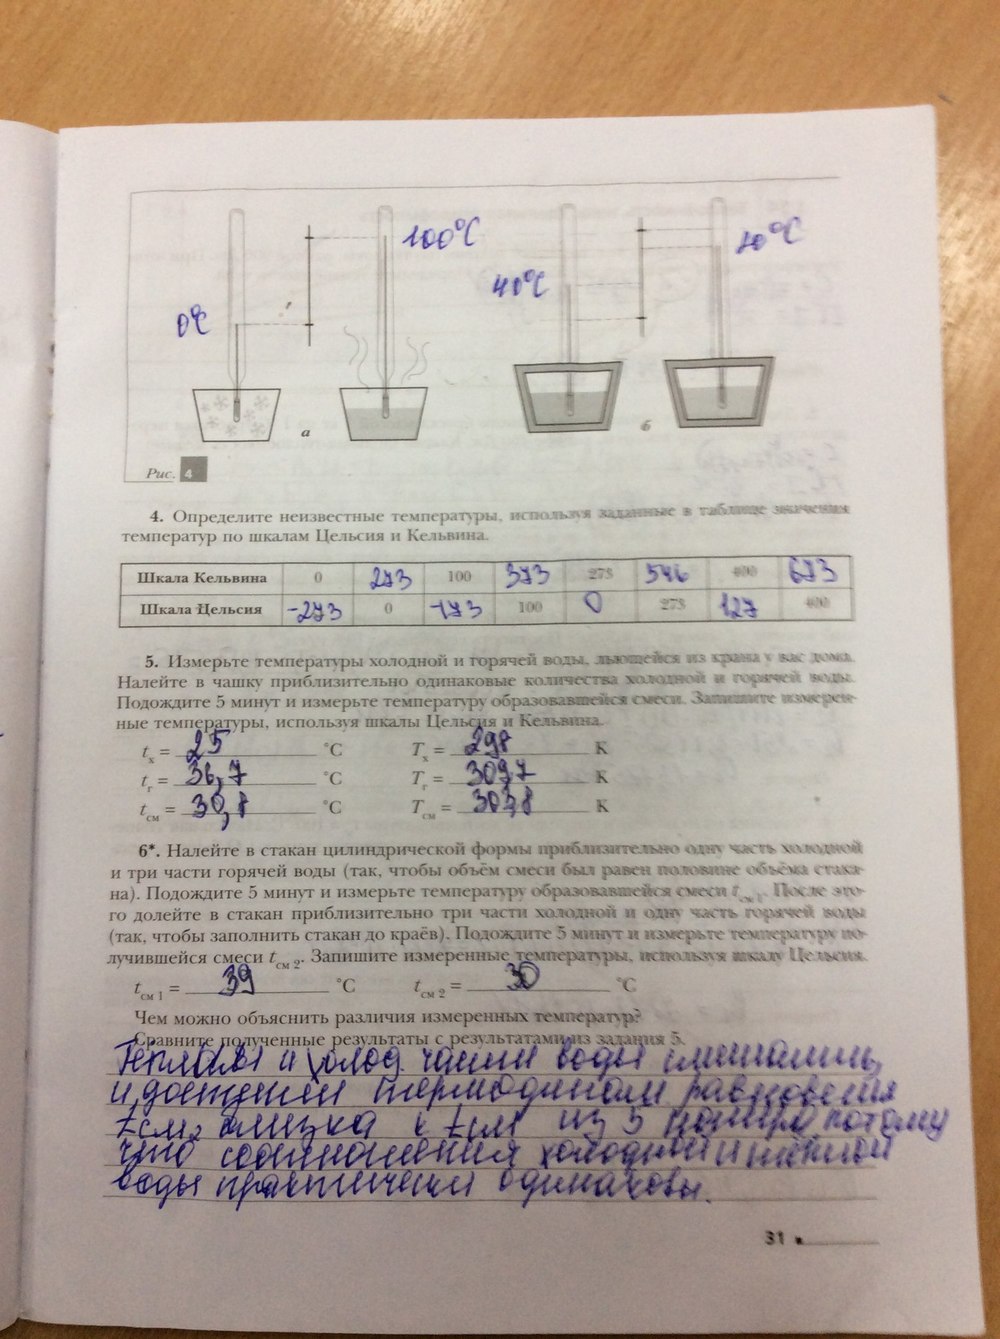 0°C
100°C
40°C
а
б
Рис. 4
4. Определите неизвестные температуры, используя заданные в таблице значения
температур по шкалам Цельсия и Кельвина.
Шкала Кельвина 0 273 100 373 273 546 400 673
Шкала Цельсия -273 0 -173 100 0 273 127 400
5. Измерьте температуры холодной и горячей воды, льющейся из крана у вас дома.
Налейте в чашку приблизительно одинаковые количества холодной и горячей воды.
Подождите 5 минут и измерьте температуру образовавшейся смеси. Запишите измерен-
ные температуры, используя шкалы Цельсия и Кельвина.
tх = 25 °C Tх = 298 К
tг = 36,7 °C Tг = 309,7 К
tсм = 30,8 °C Tсм = 303,8 К
6*. Налейте в стакан цилиндрической формы приблизительно одну часть холодной
и три части горячей воды (так, чтобы объём смеси был равен половине объёма стака-
на). Подождите 5 минут и измерьте температуру образовавшейся смеси tсм 1. После это-
го долейте в стакан приблизительно три части холодной и одну часть горячей воды
(так, чтобы заполнить стакан до краёв). Подождите 5 минут и измерьте температуру по-
лучившейся смеси tсм 2. Запишите измеренные температуры, используя шкалу Цельсия.
tсм 1 = 39 °C tсм 2 = 30 °C
Чем можно объяснить различия измеренных температур?
Сравните полученные результаты с результатами из задания 5.
и холод части воды смешались,
и достигли термодинам равновесия
tсм2 близка к tсм из 5 номера потому
что соотношения холодной и тёплой
воды практически одинаковы.
31